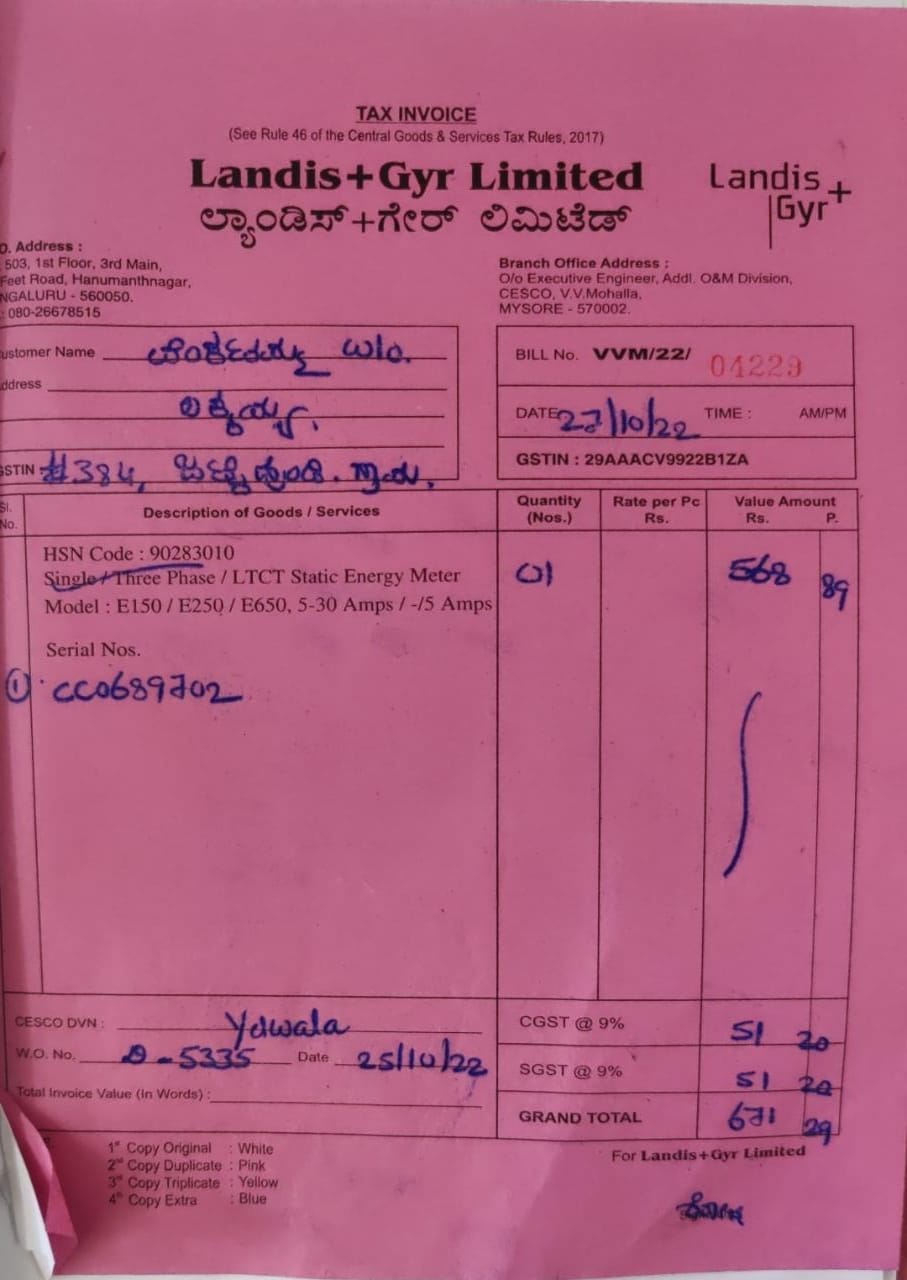 TAX INVOICE
(See Rule 46 of the Central Goods & Services Tax Rules, 2017)
Landis+Gyr Limited
ಲ್ಯಾಂಡಿಸ್+ಗೇರ್ ಲಿಮಿಟೆಡ್
Landis
Gyr+
O. Address :
503, 1st Floor, 3rd Main,
Feet Road, Hanumanthnagar,
NGALURU - 560050.
: 080-26678515
Branch Office Address :
O/o Executive Engineer, Addl. O&M Division,
CESCO, V.V.Mohalla,
MYSORE - 570002.
ustomer Name W/o.
ddress
STIN #384,
BILL No. VVM/22/ 04229
DATE 27/10/22 TIME : AM/PM
GSTIN : 29AAACV9922B1ZA
Sl. No. Description of Goods / Services Quantity (Nos.) Rate per Pc Rs. Value Amount Rs. P.
HSN Code : 90283010
Single / Three Phase / LTCT Static Energy Meter 01 568 89
Model : E150 / E250 / E650, 5-30 Amps / -/5 Amps
Serial Nos.
① CC0689702
CESCO DVN : Yelwala
W.O. No. 5335 Date 25/10/22
Total Invoice Value (In Words) :
CGST @ 9% 51 20
SGST @ 9% 51 20
GRAND TOTAL 671 29
1st Copy Original : White
2nd Copy Duplicate : Pink
3rd Copy Triplicate : Yellow
4th Copy Extra : Blue
For Landis+Gyr Limited